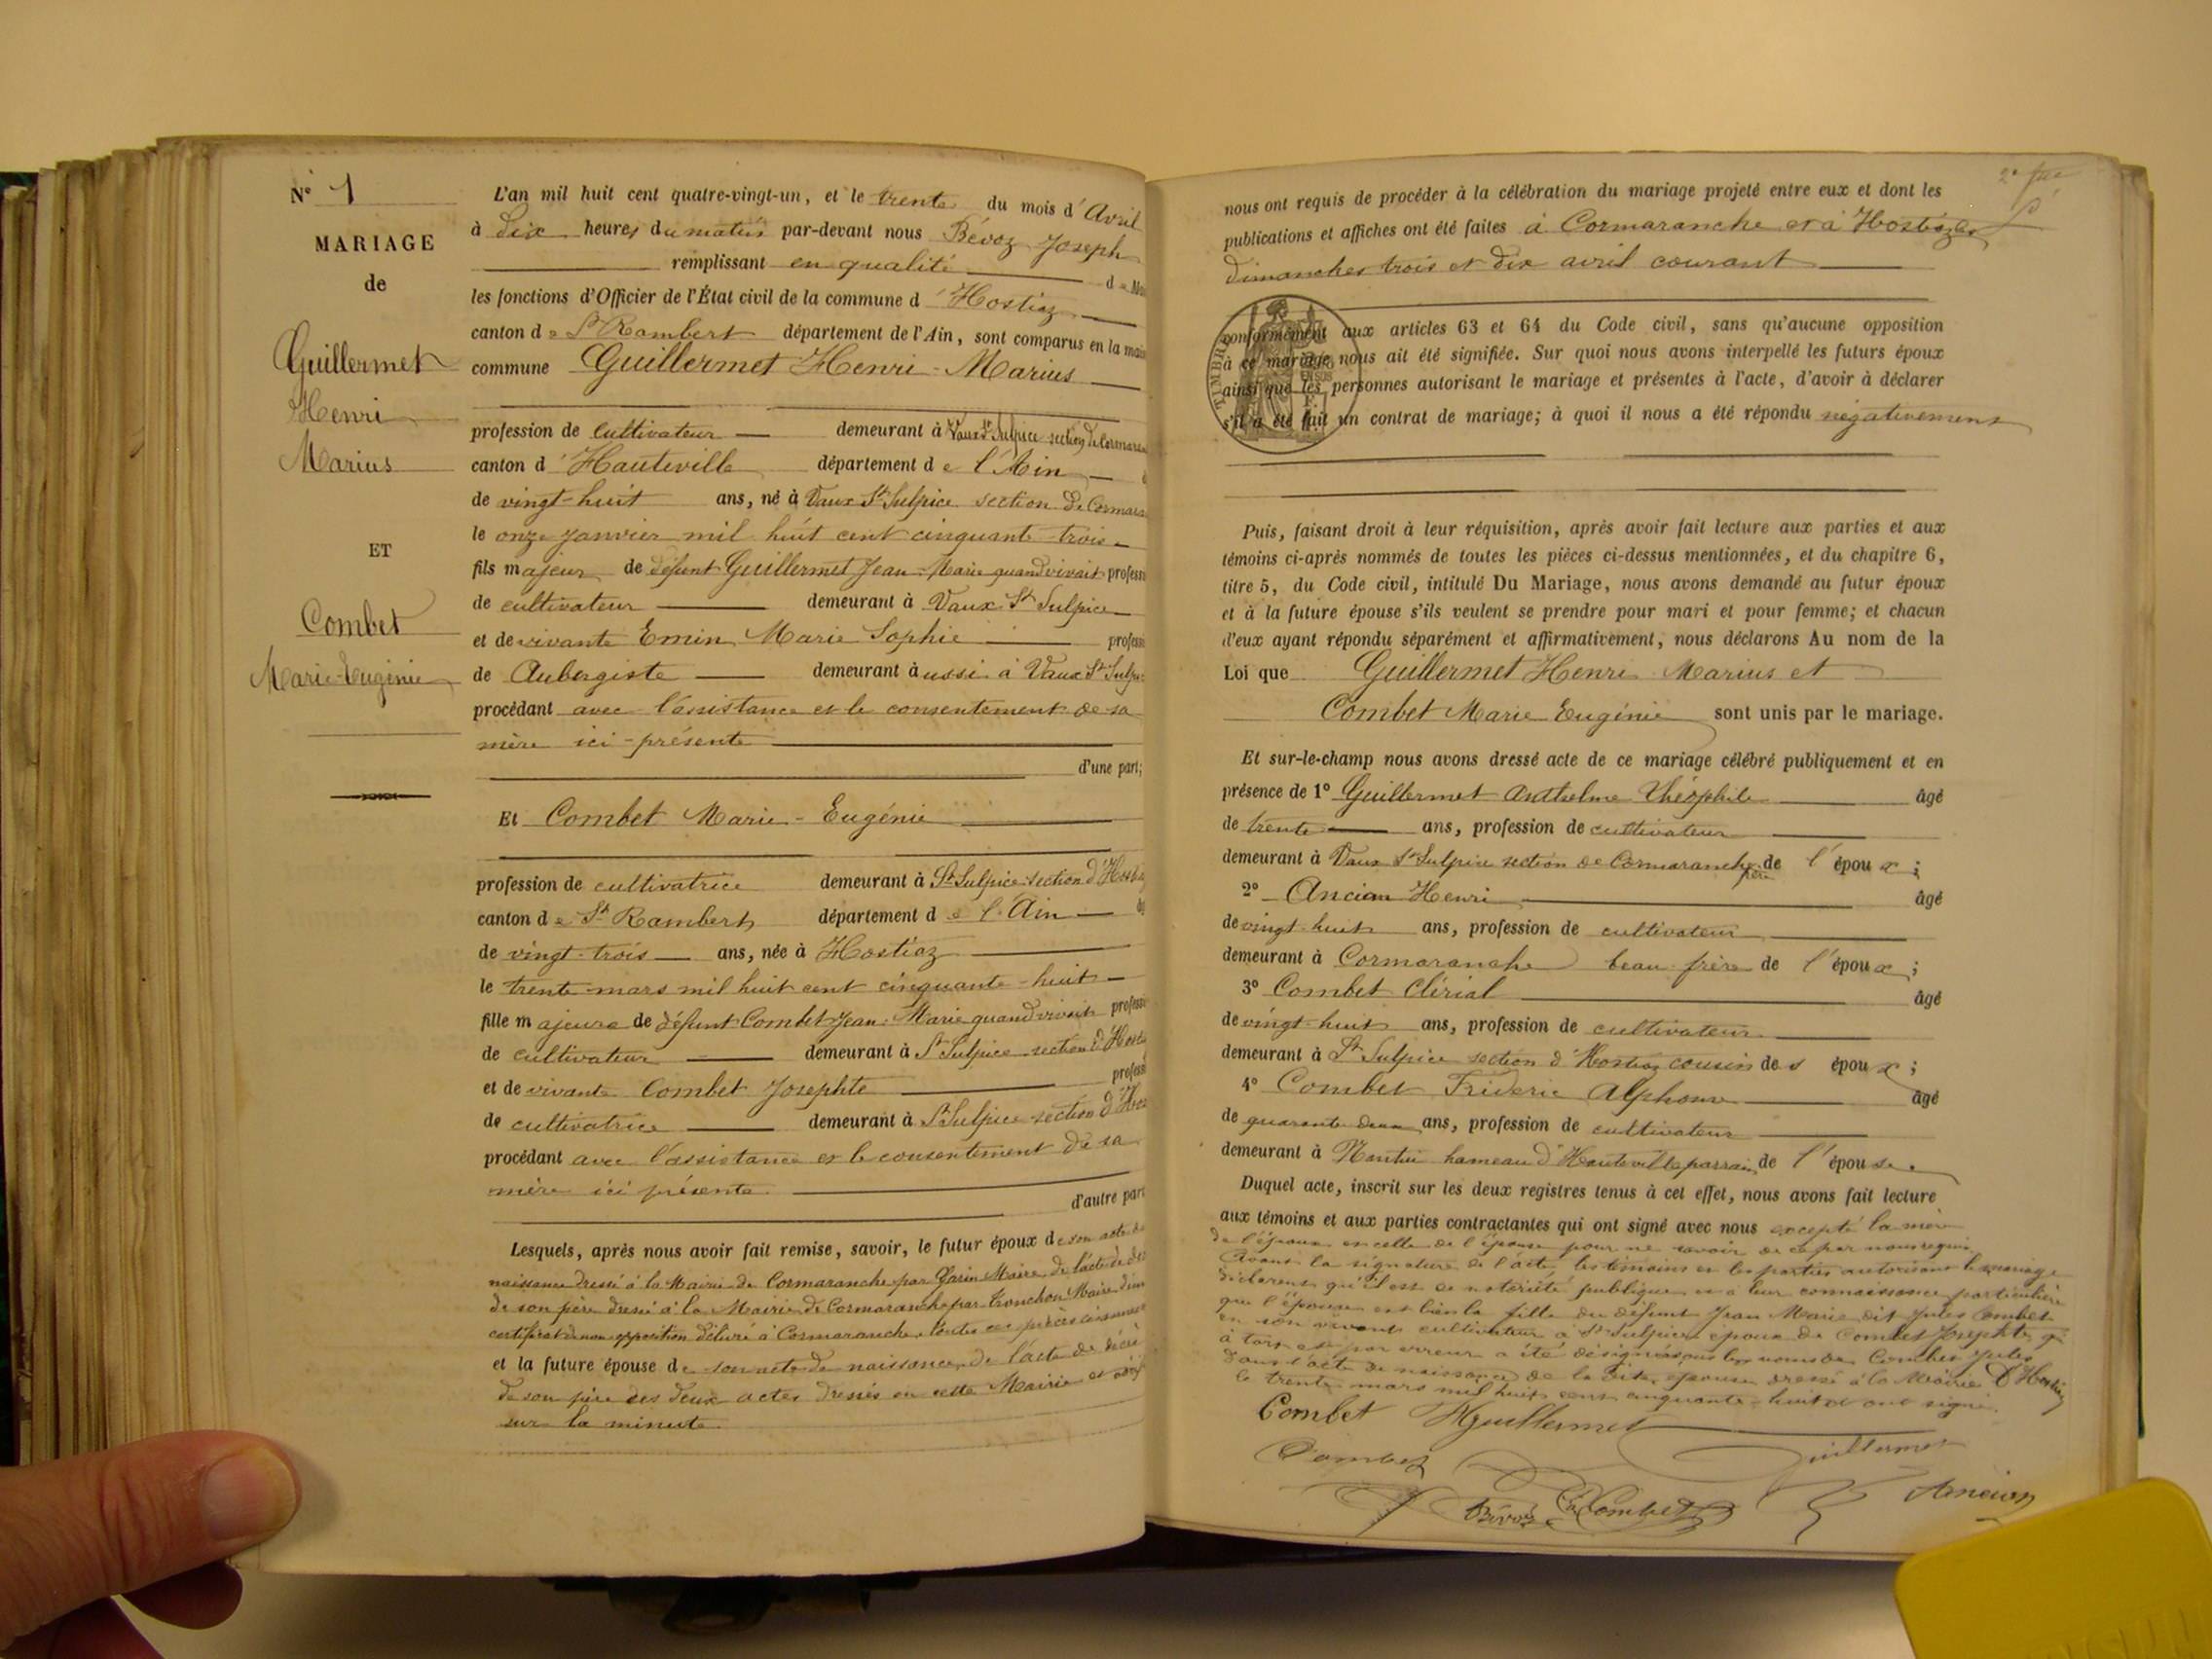 N° 1
MARIAGE
de
Guillermet
Henri
Marius
ET
Combet
Marie-Eugénie
L'an mil huit cent quatre-vingt-un, et le trente du mois d'Avril
à dix heures du matin par-devant nous Bévoz Joseph
remplissant en qualité de
les fonctions d'Officier de l'État civil de la commune d'Hostiaz
canton de St Rambert département de l'Ain, sont comparus en la
commune Guillermet Henri-Marius
profession de cultivateur demeurant à Vaux St Sulpice section de
canton d'Hauteville département de l'Ain
de vingt-huit ans, né à Vaux St Sulpice section de
le onze janvier mil huit cent cinquante-trois
fils majeur de défunt Guillermet Jean-Marie quand vivait
de cultivateur demeurant à Vaux St Sulpice
et de vivante Emin Marie Sophie
de Aubergiste demeurant à aussi à Vaux St
procédant avec l'assistance et le consentement de sa
mère ici-présente
d'une part;
Et Combet Marie-Eugénie
profession de cultivatrice demeurant à St Sulpice section
canton de St Rambert département de l'Ain
de vingt-trois ans, née à Hostiaz
le trente mars mil huit cent cinquante-huit
fille majeure de défunt Combet Jean-Marie quand vivait
de cultivateur demeurant à St Sulpice section
et de vivante Combet Josephte
de cultivatrice demeurant à St Sulpice section
procédant avec l'assistance et le consentement de sa
mère ici présente
d'autre part
Lesquels, après nous avoir fait remise, savoir, le futur époux de son acte de
naissance dressé à la Mairie de Cormaranche par Maire, de l'acte de
de son père dressé à la Mairie de Cormaranche par Tronchon Maire
certificat de non opposition délivré à Cormaranche toutes ces pièces
et la future épouse de son acte de naissance, de l'acte de décès
de son père ces deux actes dressés en cette Mairie et
sur la minute
nous ont requis de procéder à la célébration du mariage projeté entre eux et dont les
publications et affiches ont été faites à Cormaranche et à Hostiaz les
dimanches trois et dix avril courant
TIMBRE
conformément aux articles 63 et 64 du Code civil, sans qu'aucune opposition
à ce mariage nous ait été signifiée. Sur quoi nous avons interpellé les futurs époux
ainsi que les personnes autorisant le mariage et présentes à l'acte, d'avoir à déclarer
s'il a été fait un contrat de mariage; à quoi il nous a été répondu négativement
Puis, faisant droit à leur réquisition, après avoir fait lecture aux parties et aux
témoins ci-après nommés de toutes les pièces ci-dessus mentionnées, et du chapitre 6,
titre 5, du Code civil, intitulé Du Mariage, nous avons demandé au futur époux
et à la future épouse s'ils veulent se prendre pour mari et pour femme; et chacun
d'eux ayant répondu séparément et affirmativement, nous déclarons Au nom de la
Loi que Guillermet Henri Marius et
Combet Marie Eugénie sont unis par le mariage.
Et sur-le-champ nous avons dressé acte de ce mariage célébré publiquement et en
présence de 1° Guillermet Anthelme Théophile âgé
de trente ans, profession de cultivateur
demeurant à Vaux St Sulpice section de Cormaranche frère de l'époux;
2° Ancian Henri âgé
de vingt huit ans, profession de cultivateur
demeurant à Cormaranche beau-frère de l'époux;
3° Combet Clérial âgé
de vingt-huit ans, profession de cultivateur
demeurant à St Sulpice section d'Hostiaz cousin des époux;
4° Combet Frideric Alphonse âgé
de quarante deux ans, profession de cultivateur
demeurant à Nantui hameau d'Hauteville parrain de l'épouse.
Duquel acte, inscrit sur les deux registres tenus à cet effet, nous avons fait lecture
aux témoins et aux parties contractantes qui ont signé avec nous excepté la mère
de l'époux et celle de l'épouse pour ne savoir de ce par nous requis
Avant la signature de l'acte, les témoins et les parties autorisant le mariage
déclarent qu'il est de notoriété publique et à leur connaissance particulière
que l'épouse est bien la fille du défunt Jean Marie dit Jules Combet
en son vivant cultivateur à St Sulpice époux de Combet Josephte
à tort et par erreur a été désigné sous les noms de Combet Jules
dans l'acte de naissance de la dite épouse dressé à la Mairie d'Hostiaz
le trente mars mil huit cent cinquante-huit et ont signé.
Combet HGuillermet
Combet Guillermet
Bévoz Combet Ancian